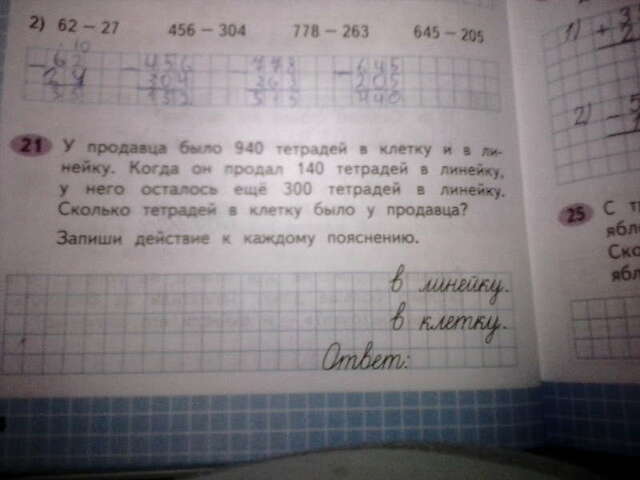 2) 62 − 27 456 − 304 778 − 263 645 − 205
10
− 62 − 456 − 778 − 645
27 304 263 205
35 152 515 440
21 У продавца было 940 тетрадей в клетку и в ли-
нейку. Когда он продал 140 тетрадей в линейку,
у него осталось ещё 300 тетрадей в линейку.
Сколько тетрадей в клетку было у продавца?
Запиши действие к каждому пояснению.
в линейку.
в клетку.
Ответ:
1) + 3
2
2) − 5
25 С
ябл
Ско
ябл